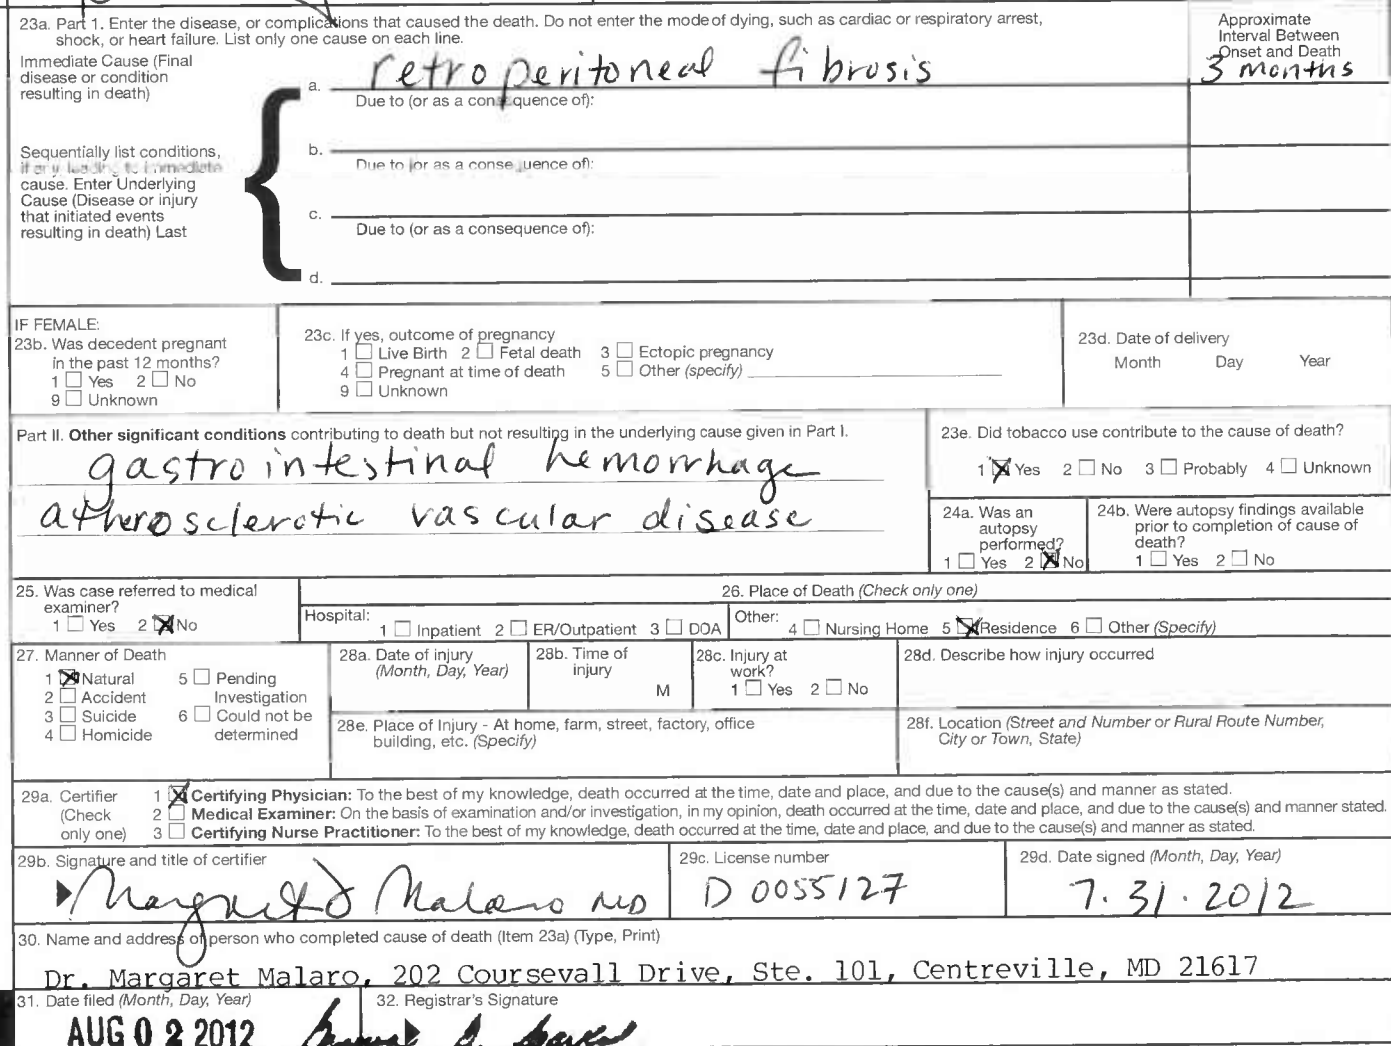 23a. Part 1. Enter the disease, or complications that caused the death. Do not enter the mode of dying, such as cardiac or respiratory arrest,
shock, or heart failure. List only one cause on each line.
Approximate
Interval Between
Onset and Death
Immediate Cause (Final
disease or condition
resulting in death)
a. retroperitoneal fibrosis
3 months
Due to (or as a consequence of):
Sequentially list conditions,
if any leading to immediate
cause. Enter Underlying
Cause (Disease or injury
that initiated events
resulting in death) Last
b.
Due to (or as a consequence of):
c.
Due to (or as a consequence of):
d.
IF FEMALE:
23b. Was decedent pregnant
in the past 12 months?
1 ☐ Yes 2 ☐ No
9 ☐ Unknown
23c. If yes, outcome of pregnancy
1 ☐ Live Birth 2 ☐ Fetal death 3 ☐ Ectopic pregnancy
4 ☐ Pregnant at time of death 5 ☐ Other (specify)
9 ☐ Unknown
23d. Date of delivery
Month Day Year
Part II. Other significant conditions contributing to death but not resulting in the underlying cause given in Part I.
gastrointestinal hemorrhage
atherosclerotic vascular disease
23e. Did tobacco use contribute to the cause of death?
1 ☒ Yes 2 ☐ No 3 ☐ Probably 4 ☐ Unknown
24a. Was an
autopsy
performed?
1 ☐ Yes 2 ☒ No
24b. Were autopsy findings available
prior to completion of cause of
death?
1 ☐ Yes 2 ☐ No
25. Was case referred to medical
examiner?
1 ☐ Yes 2 ☒ No
26. Place of Death (Check only one)
Hospital: 1 ☐ Inpatient 2 ☐ ER/Outpatient 3 ☐ DOA
Other: 4 ☐ Nursing Home 5 ☒ Residence 6 ☐ Other (Specify)
27. Manner of Death
1 ☒ Natural 5 ☐ Pending
2 ☐ Accident Investigation
3 ☐ Suicide 6 ☐ Could not be
4 ☐ Homicide determined
28a. Date of injury
(Month, Day, Year)
28b. Time of
injury
M
28c. Injury at
work?
1 ☐ Yes 2 ☐ No
28d. Describe how injury occurred
28e. Place of Injury - At home, farm, street, factory, office
building, etc. (Specify)
28f. Location (Street and Number or Rural Route Number,
City or Town, State)
29a. Certifier
(Check
only one)
1 ☒ Certifying Physician: To the best of my knowledge, death occurred at the time, date and place, and due to the cause(s) and manner as stated.
2 ☐ Medical Examiner: On the basis of examination and/or investigation, in my opinion, death occurred at the time, date and place, and due to the cause(s) and manner stated.
3 ☐ Certifying Nurse Practitioner: To the best of my knowledge, death occurred at the time, date and place, and due to the cause(s) and manner as stated.
29b. Signature and title of certifier
Margaret Malaro MD
29c. License number
D 0055127
29d. Date signed (Month, Day, Year)
7.31.2012
30. Name and address of person who completed cause of death (Item 23a) (Type, Print)
Dr. Margaret Malaro, 202 Coursevall Drive, Ste. 101, Centreville, MD 21617
31. Date filed (Month, Day, Year)
AUG 02 2012
32. Registrar's Signature